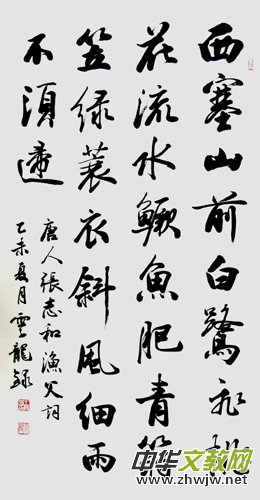 西塞山前白鷺飛桃
花流水鱖魚肥青箬
笠綠蓑衣斜風細雨
不須
唐人張志和漁父詞
乙未夏月雲龍錄
中华文教网
www.zhwjw.net